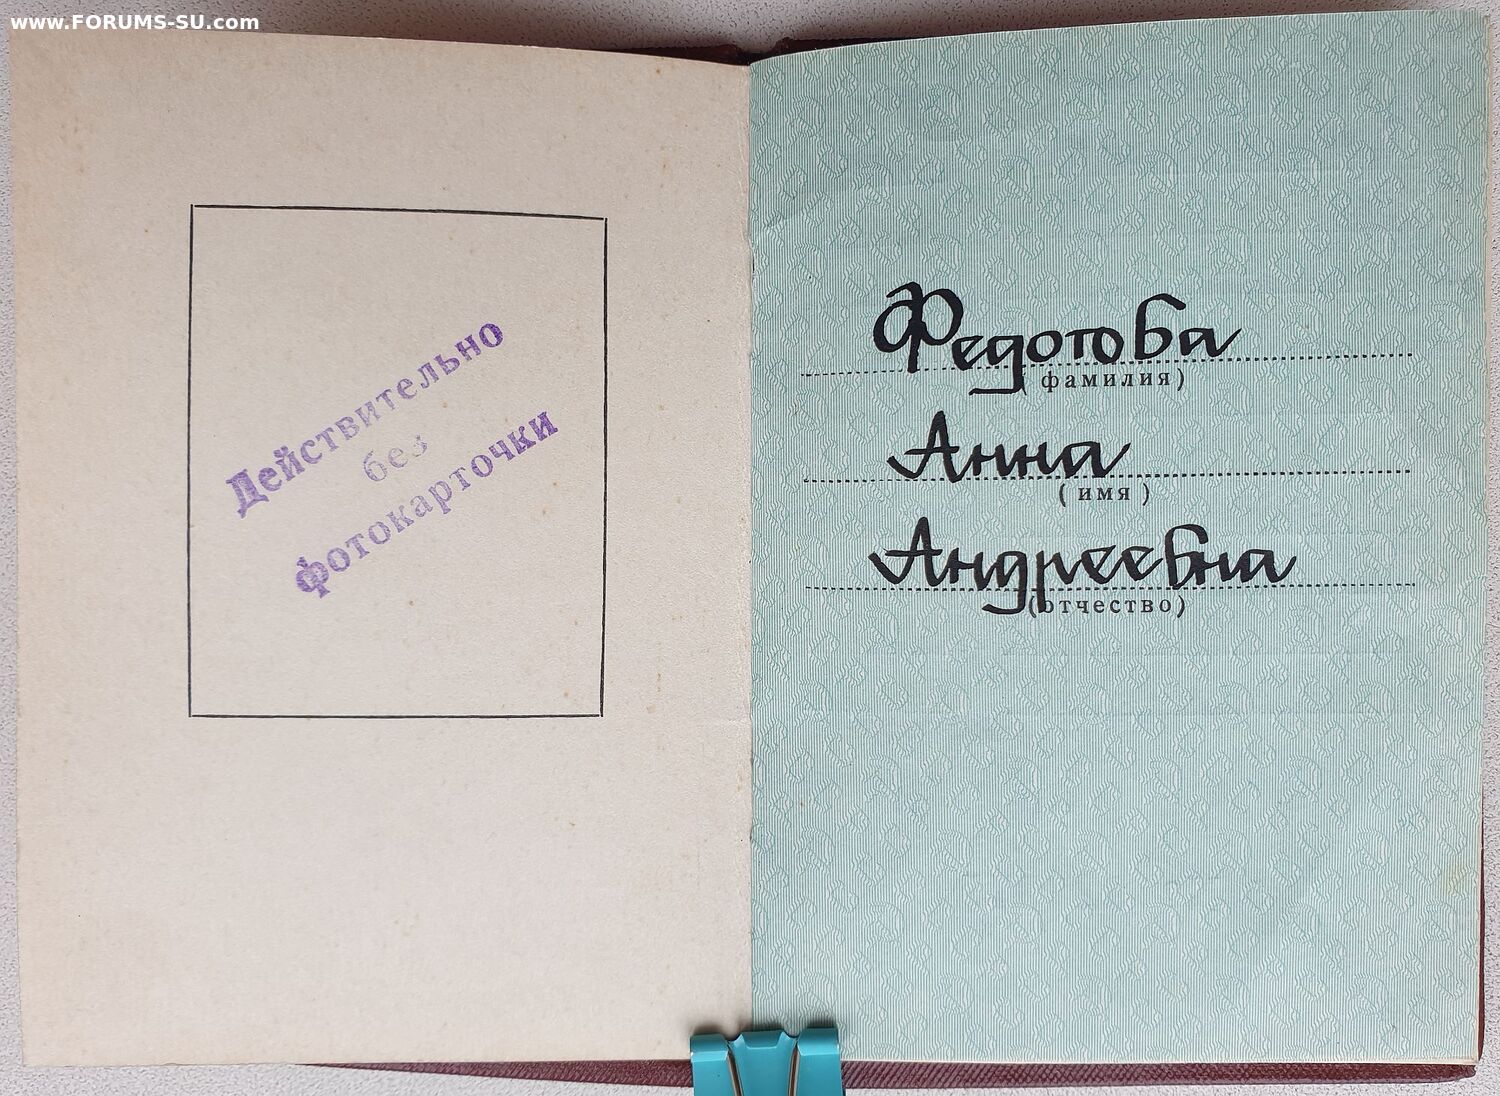 www.FORUMS-SU.com
Действительно
без
фотокарточки
Федотова
(фамилия)
Анна
(имя)
Андреевна
(отчество)